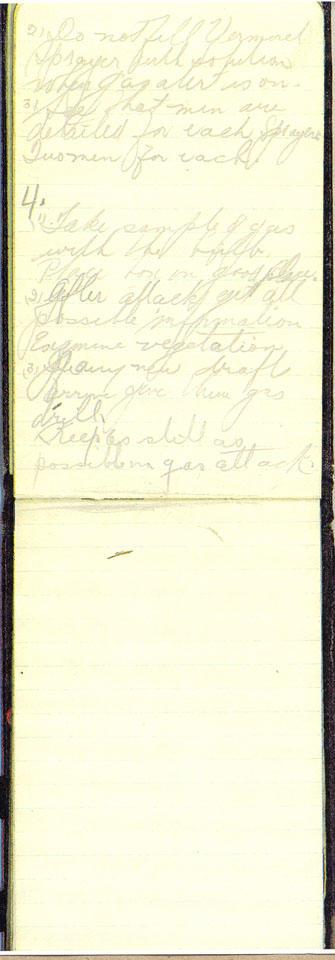 2) Do not fill Vermorel
Sprayer with solution
when gas alert is on.
3) See that men are
detailed for each Sprayer
Two men for each.
4.
1) Take sample of gas
with the bulb.
on good place.
2) After attack get all
possible information
Examine vegetation
3) If any new draft
arrive give them gas
drill.
Keep as still as
possible in gas attack.